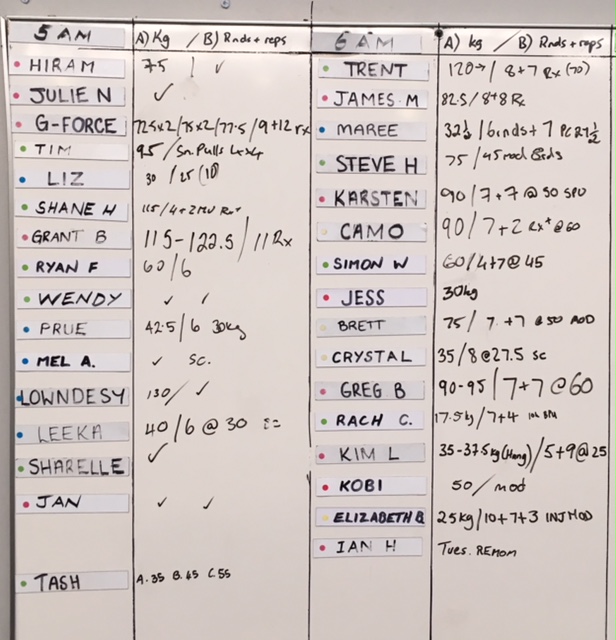 5 AM A) Kg / B) Rnds + reps
HIRAM 75 / ✓
JULIE N ✓
G-FORCE 72.5x2/75x2/77.5/9+12 rx
TIM 95 / Sn. Pulls 4x4
LIZ 30 / 25 (10)
SHANE H 115/4+2
GRANT B 115-122.5/11 Rx
RYAN F 60/6
WENDY ✓ /
PRUE 42.5/6 30kg
MEL A. ✓ SC.
LOWNDESY 130/ ✓
LEEKA 40/6 @ 30
SHARELLE ✓
JAN ✓ ✓
TASH A.35 B.45 C.55
6 AM A) kg / B) Rnds + reps
TRENT 120 / 8+7 Rx (70)
JAMES M 82.5/8+8 Rx
MAREE 32½ / 6 rnds + 7
STEVE H 75 / 45 mod
KARSTEN 90/7+7 @ 50
CAMO 90/7+2 Rx+ @60
SIMON W 60/4+7@ 45
JESS 30kg
BRETT 75/ 7 +7 @ 50
CRYSTAL 35/8@27.5 SC
GREG B 90-95/7+7@60
RACH C. 17.5kg/7+4
KIM L 35-37.5kg(Hang)/5+9@25
KOBI 50 / mod
ELIZABETH B 25kg/10+7+3 INJ MOD
IAN H Tues. REMOM